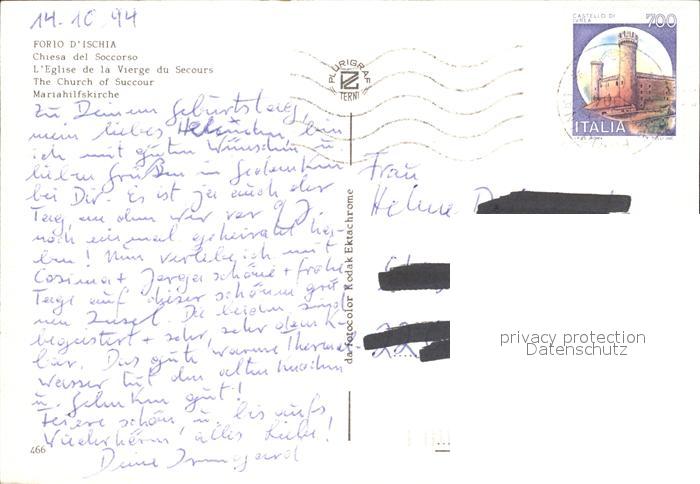 14.10.94
FORIO D'ISCHIA
Chiesa del Soccorso
L'Eglise de la Vierge du Secours
The Church of Succour
Mariahilfskirche
Zu Deinem Geburtstag,
mein liebes Helmchen, bin
ich mit guten Wünschen u.
lieben Grüßen in Gedanken
bei Dir. Es ist ja auch der
Tag, an dem wir vor 9 J.
noch einmal geheiratet ha-
ben! Nun verlebe ich mit
Cosima + schöne + frohe
Tage auf dieser schönen grü-
nen Insel. Die beiden sind
begeistert + sehr, sehr dank-
bar. Das gute, warme Thermal-
wasser tut den alten Knochen
u. Gelenken gut!
Feiere schön u. bis aufs
Wiederhören, alles Liebe!
Deine Irmgard
466
da fotocolor Kodak Ektachrome
PLURIGRAF
TERNI
CASTELLO DI
IVREA
700
ITALIA
Frau
Helma
privacy protection
Datenschutz